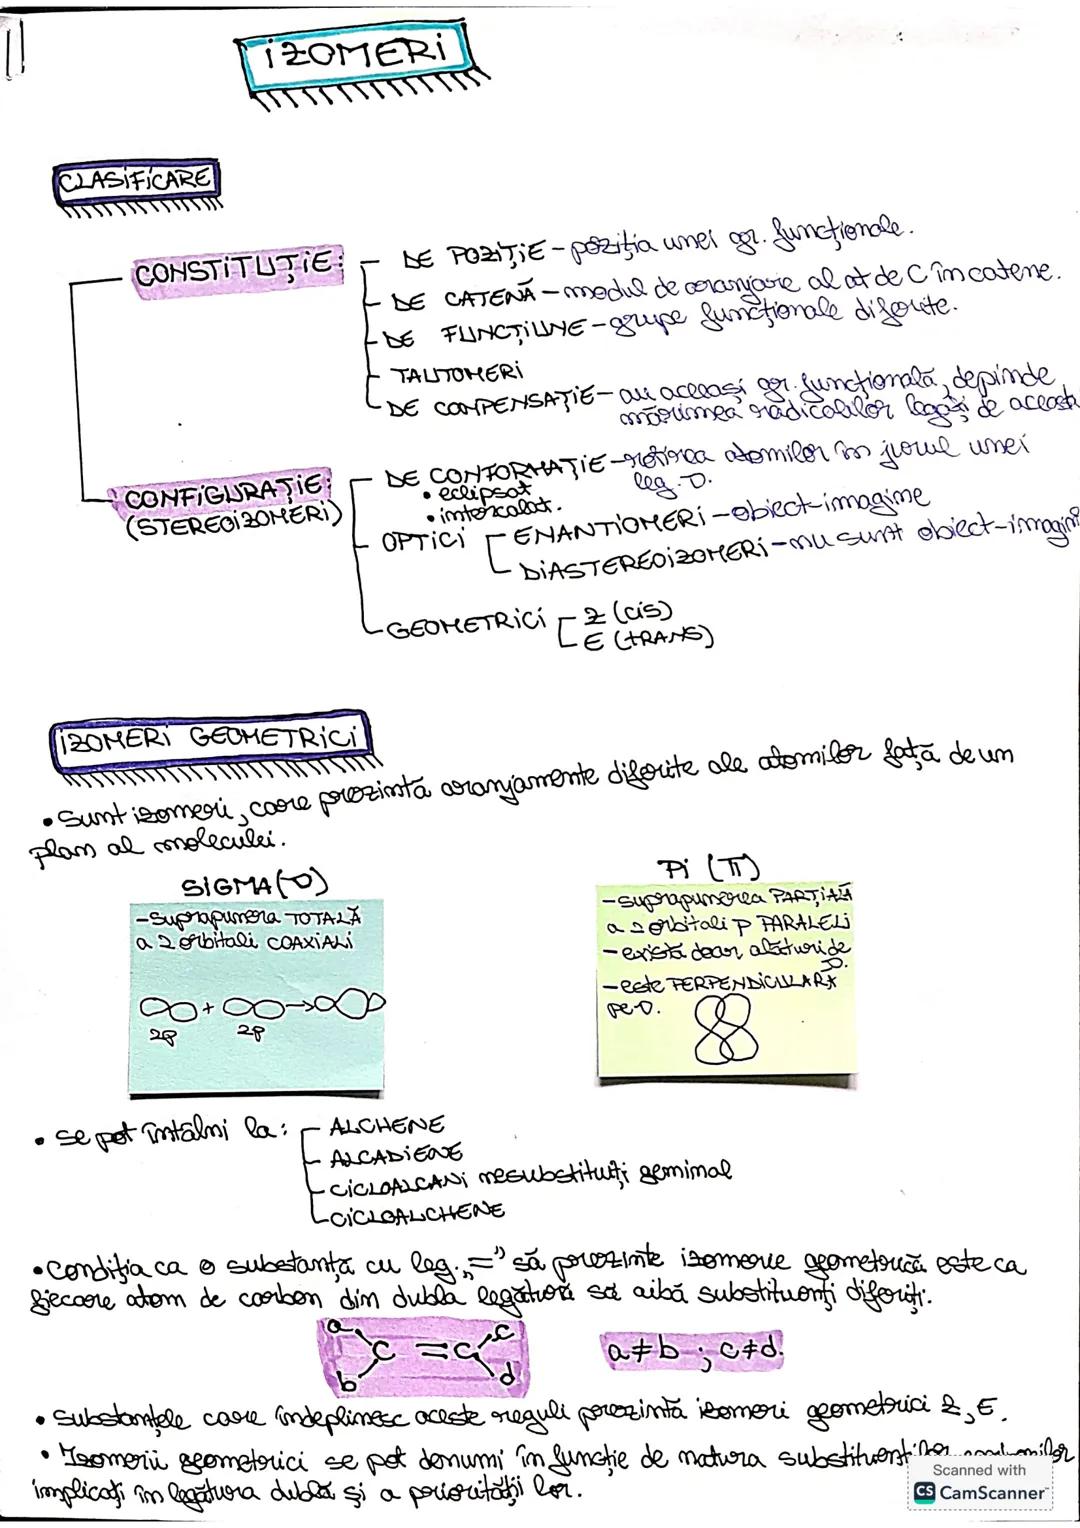 IZOMERI
CLASIFICARE
CONSTITUȚIE:
DE POZIȚIE - poziția unei gr. funcționale.
DE CATENĂ - modul de aranjare al at de C în catene.
DE FUNCȚIUNE - grupe funcționale diferite.
TAUTOMERI
DE COMPENSAȚIE - au aceeași gr. funcțională, depinde
mărimea radicalilor legați de aceasta
CONFIGURAȚIE:
(STEREOIZOMERI)
DE CONFORMAȚIE - rotirea atomilor în jurul unei
leg. σ.
• eclipsat
• intercalat.
OPTICI
ENANTIOMERI - obiect-imagine
DIASTEREOIZOMERI - nu sunt obiect-imagine
GEOMETRICI
Z (cis)
E (TRANS)
IZOMERI GEOMETRICI
• Sunt izomeri, care prezintă aranjamente diferite ale atomilor față de un
plan al moleculei.
SIGMA (σ)
- suprapunerea TOTALĂ
a 2 orbitali COAXIALI
+ →
2p 2p
Pi (π)
- suprapunerea PARȚIALĂ
a 2 orbitali p PARALELI
- există doar alături de
σ.
- este PERPENDICULARĂ
pe σ.
• se pot întâlni la:
ALCHENE
ALCADIENE
CICLOALCANI nesubstituiți geminal
CICLOALCHENE
• Condiția ca o substanță cu leg. „=" să prezinte izomerie geometrică este ca
fiecare atom de carbon din dubla legătură să aibă substituenți diferiți.
a c
C = C
b d
a≠b ; c≠d.
• Substanțele care îndeplinesc aceste reguli prezintă izomeri geometrici Z, E.
• Izomerii geometrici se pot denumi în funcție de natura substituenților
implicați în legătura dublă și a priorității lor.
Scanned with
CS CamScanner